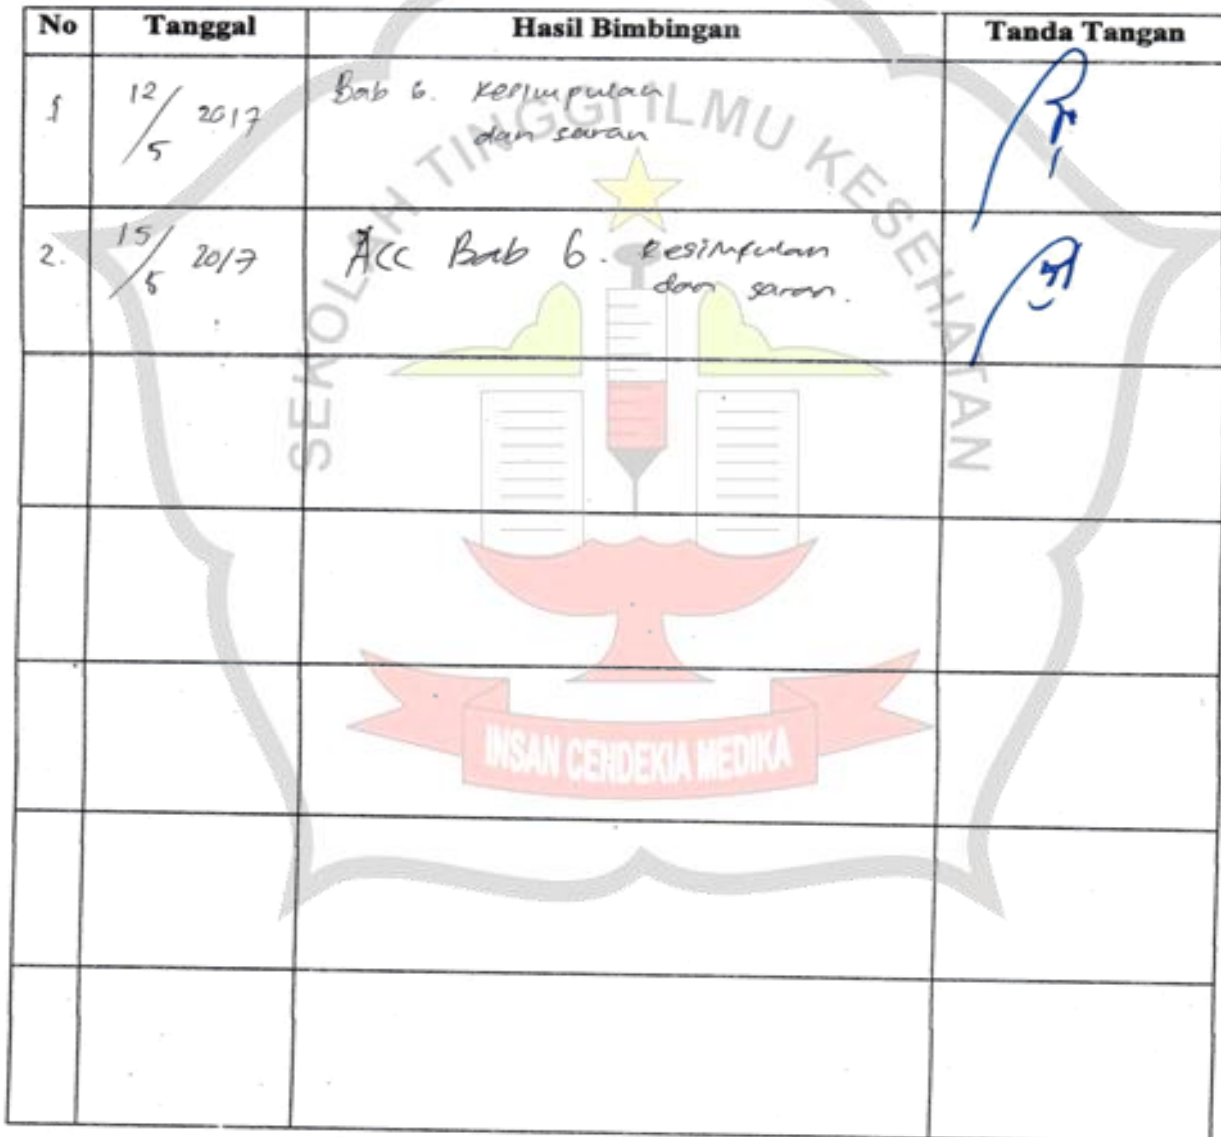 No Tanggal Hasil Bimbingan Tanda Tangan
1 12/5 2017 Bab 6. Kesimpulan
dan saran
2. 15/5 2017 Acc Bab 6. Kesimpulan
dan saran.
SEKOLAH TINGGI ILMU KESEHATAN
INSAN CENDEKIA MEDIKA